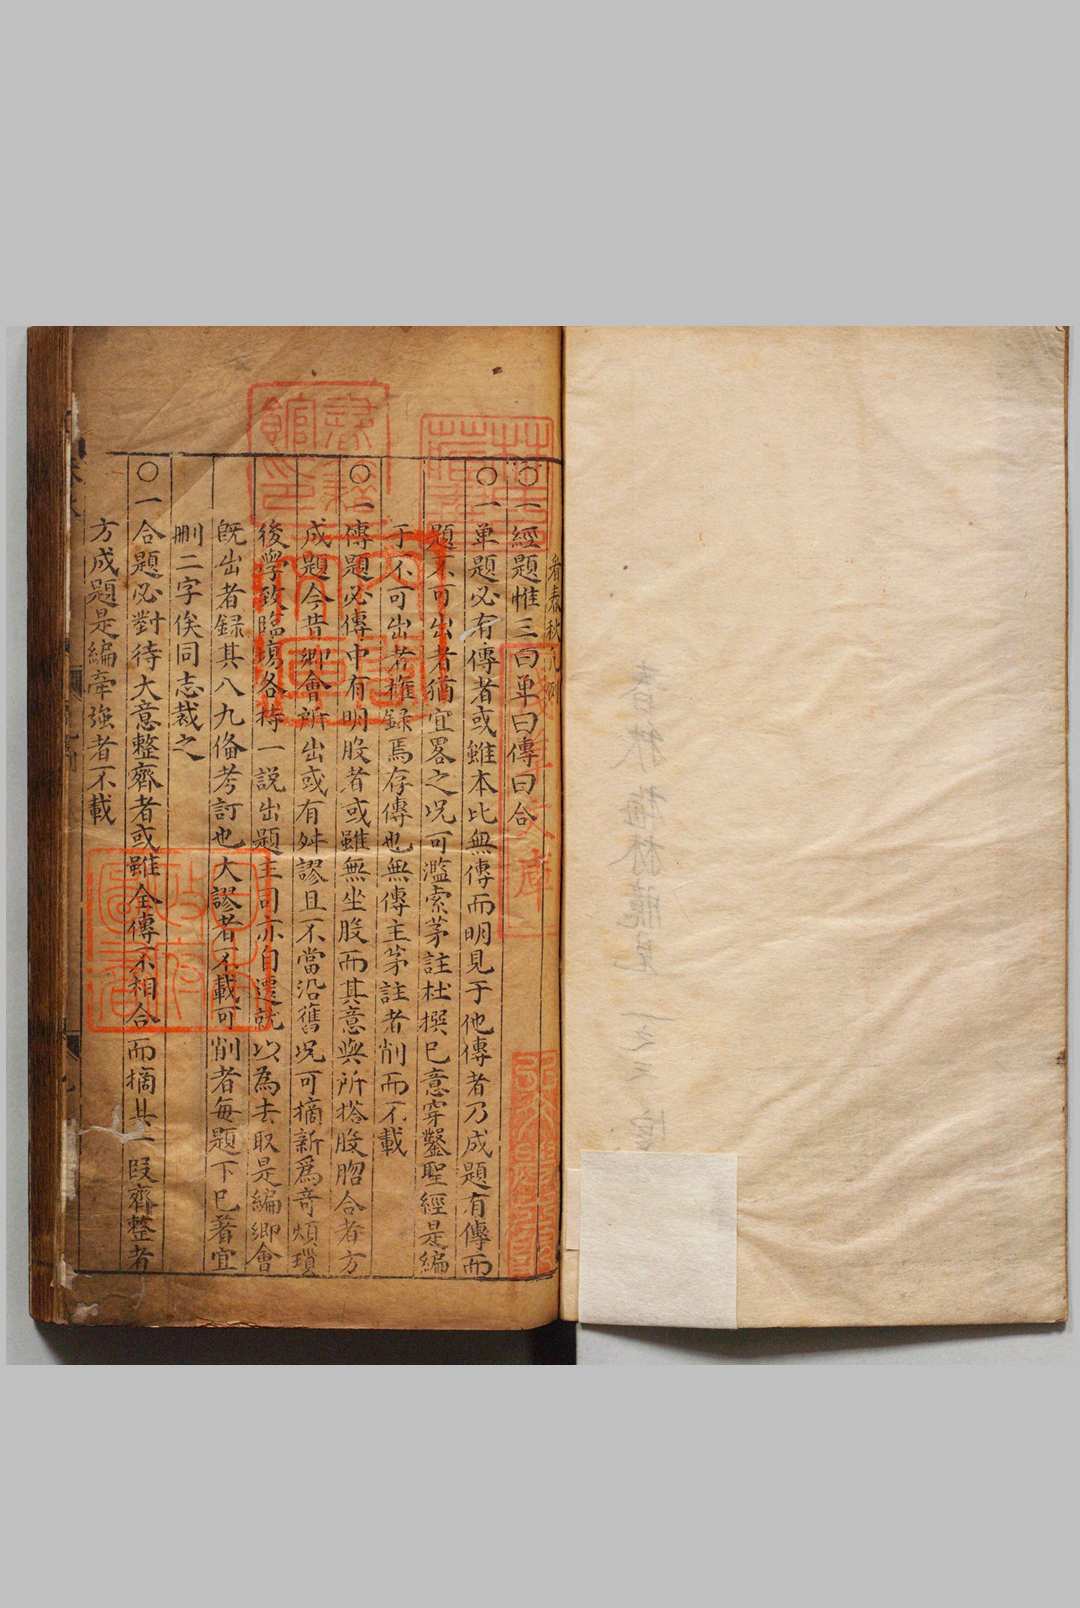 看春秋凡例
○一經題惟三曰單曰傳曰合
○一單題必有傳者或雖本比無傳而明見于他傳者乃成題有傳而
題不可出者猶宜畧之况可濫索茅註杜撰已意穿鑿聖經是編
于不可出者権録焉存傳也無傳主茅註者削而不載
○一傳題必傳中有明股者或雖無坐股而其意與所搭股脗合者方
成題今昔鄉會所出或有舛謬且不當沿舊况可摘新爲竒煩瑣
後學致臨場各持一說出題主司亦自遷就以為去取是編鄉會
旣出者録其八九俻考訂也大謬者不載可削者每題下已著宜
刪二字俟同志裁之
○一合題必對待大意整齊者或雖全傳不相合而摘其一段齊整者
方成題是編牽強者不載
春秋梅林臆見 一之三